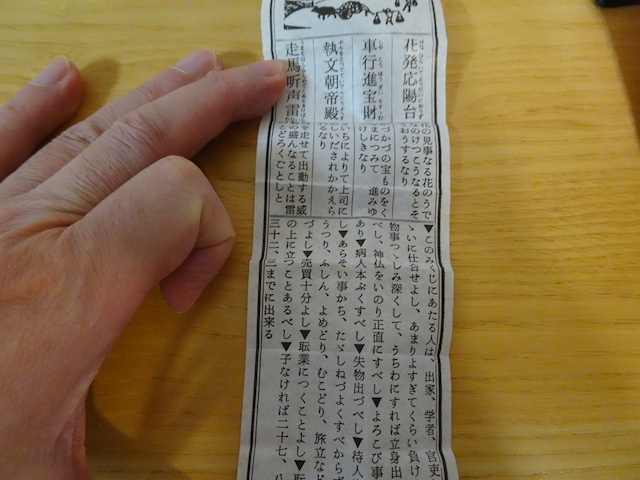 花発応陽台
車行進宝財
執文朝帝殿
走馬听声雷
花の見事なる花のうて
なのけつこうなるとそ
なおうするなり
づかづの宝ものをく
まにつみて 進みゆ
けしきなり
いちによりて上司に
しいだされかかえら
るなり
を走せて出動する威
の盛んなることは雷
とどろくごとしと
▼このみくじにあたる人は、出家、学者、官吏
ゝいに仕合せよし、あまりよすぎてくらい負け
物事つゝしみ深くして、うちわにすれば立身出
べし、神仏をいのり正直にすべし▼よろこび事
あり▼病人本ぶくすべし▼失物出づべし▼待人
し▼あらそい事かち、たゞしねづよくすべからず
うつり、ふしん、よめどり、むこどり、旅立など
づよし▼売買十分よし▼転業につくことよし▼
の上に立つことあるべし▼子なければ二十七、八
三十二、三までに出来る